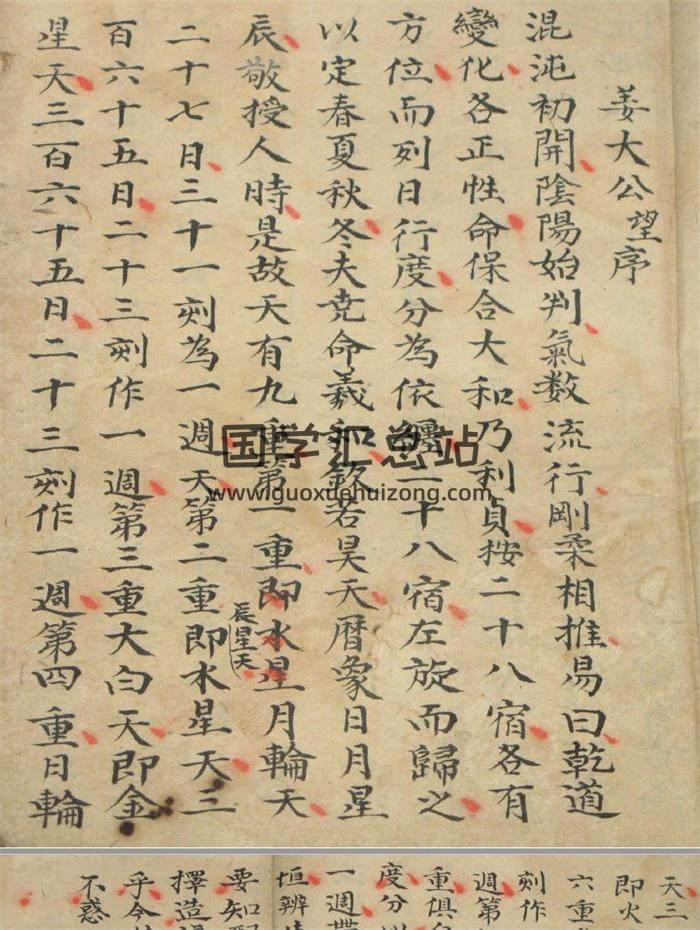 姜大公望序
混沌初開陰陽始判氣数流行剛柔相推易曰乾道
變化各正性命保合大和乃利貞按二十八宿各有
方位而列日行度分為依纏二十八宿左旋而歸之
以定春夏秋冬夫尭命羲和欽若昊天暦象日月星
辰敬授人時是故天有九重第一重即水星月輪天
辰星天
二十七日三十一刻為一週天第二重即水星天三
百六十五日二十三刻作一週第三重大白天即金
星天三百六十五日二十三刻作一週第四重日輪
国学汇总站
www.guoxuehuizong.com
天三
即火
六重
刻作
週第
重俱
度分
一週
垣辨
要知
擇造
乎今
不惑